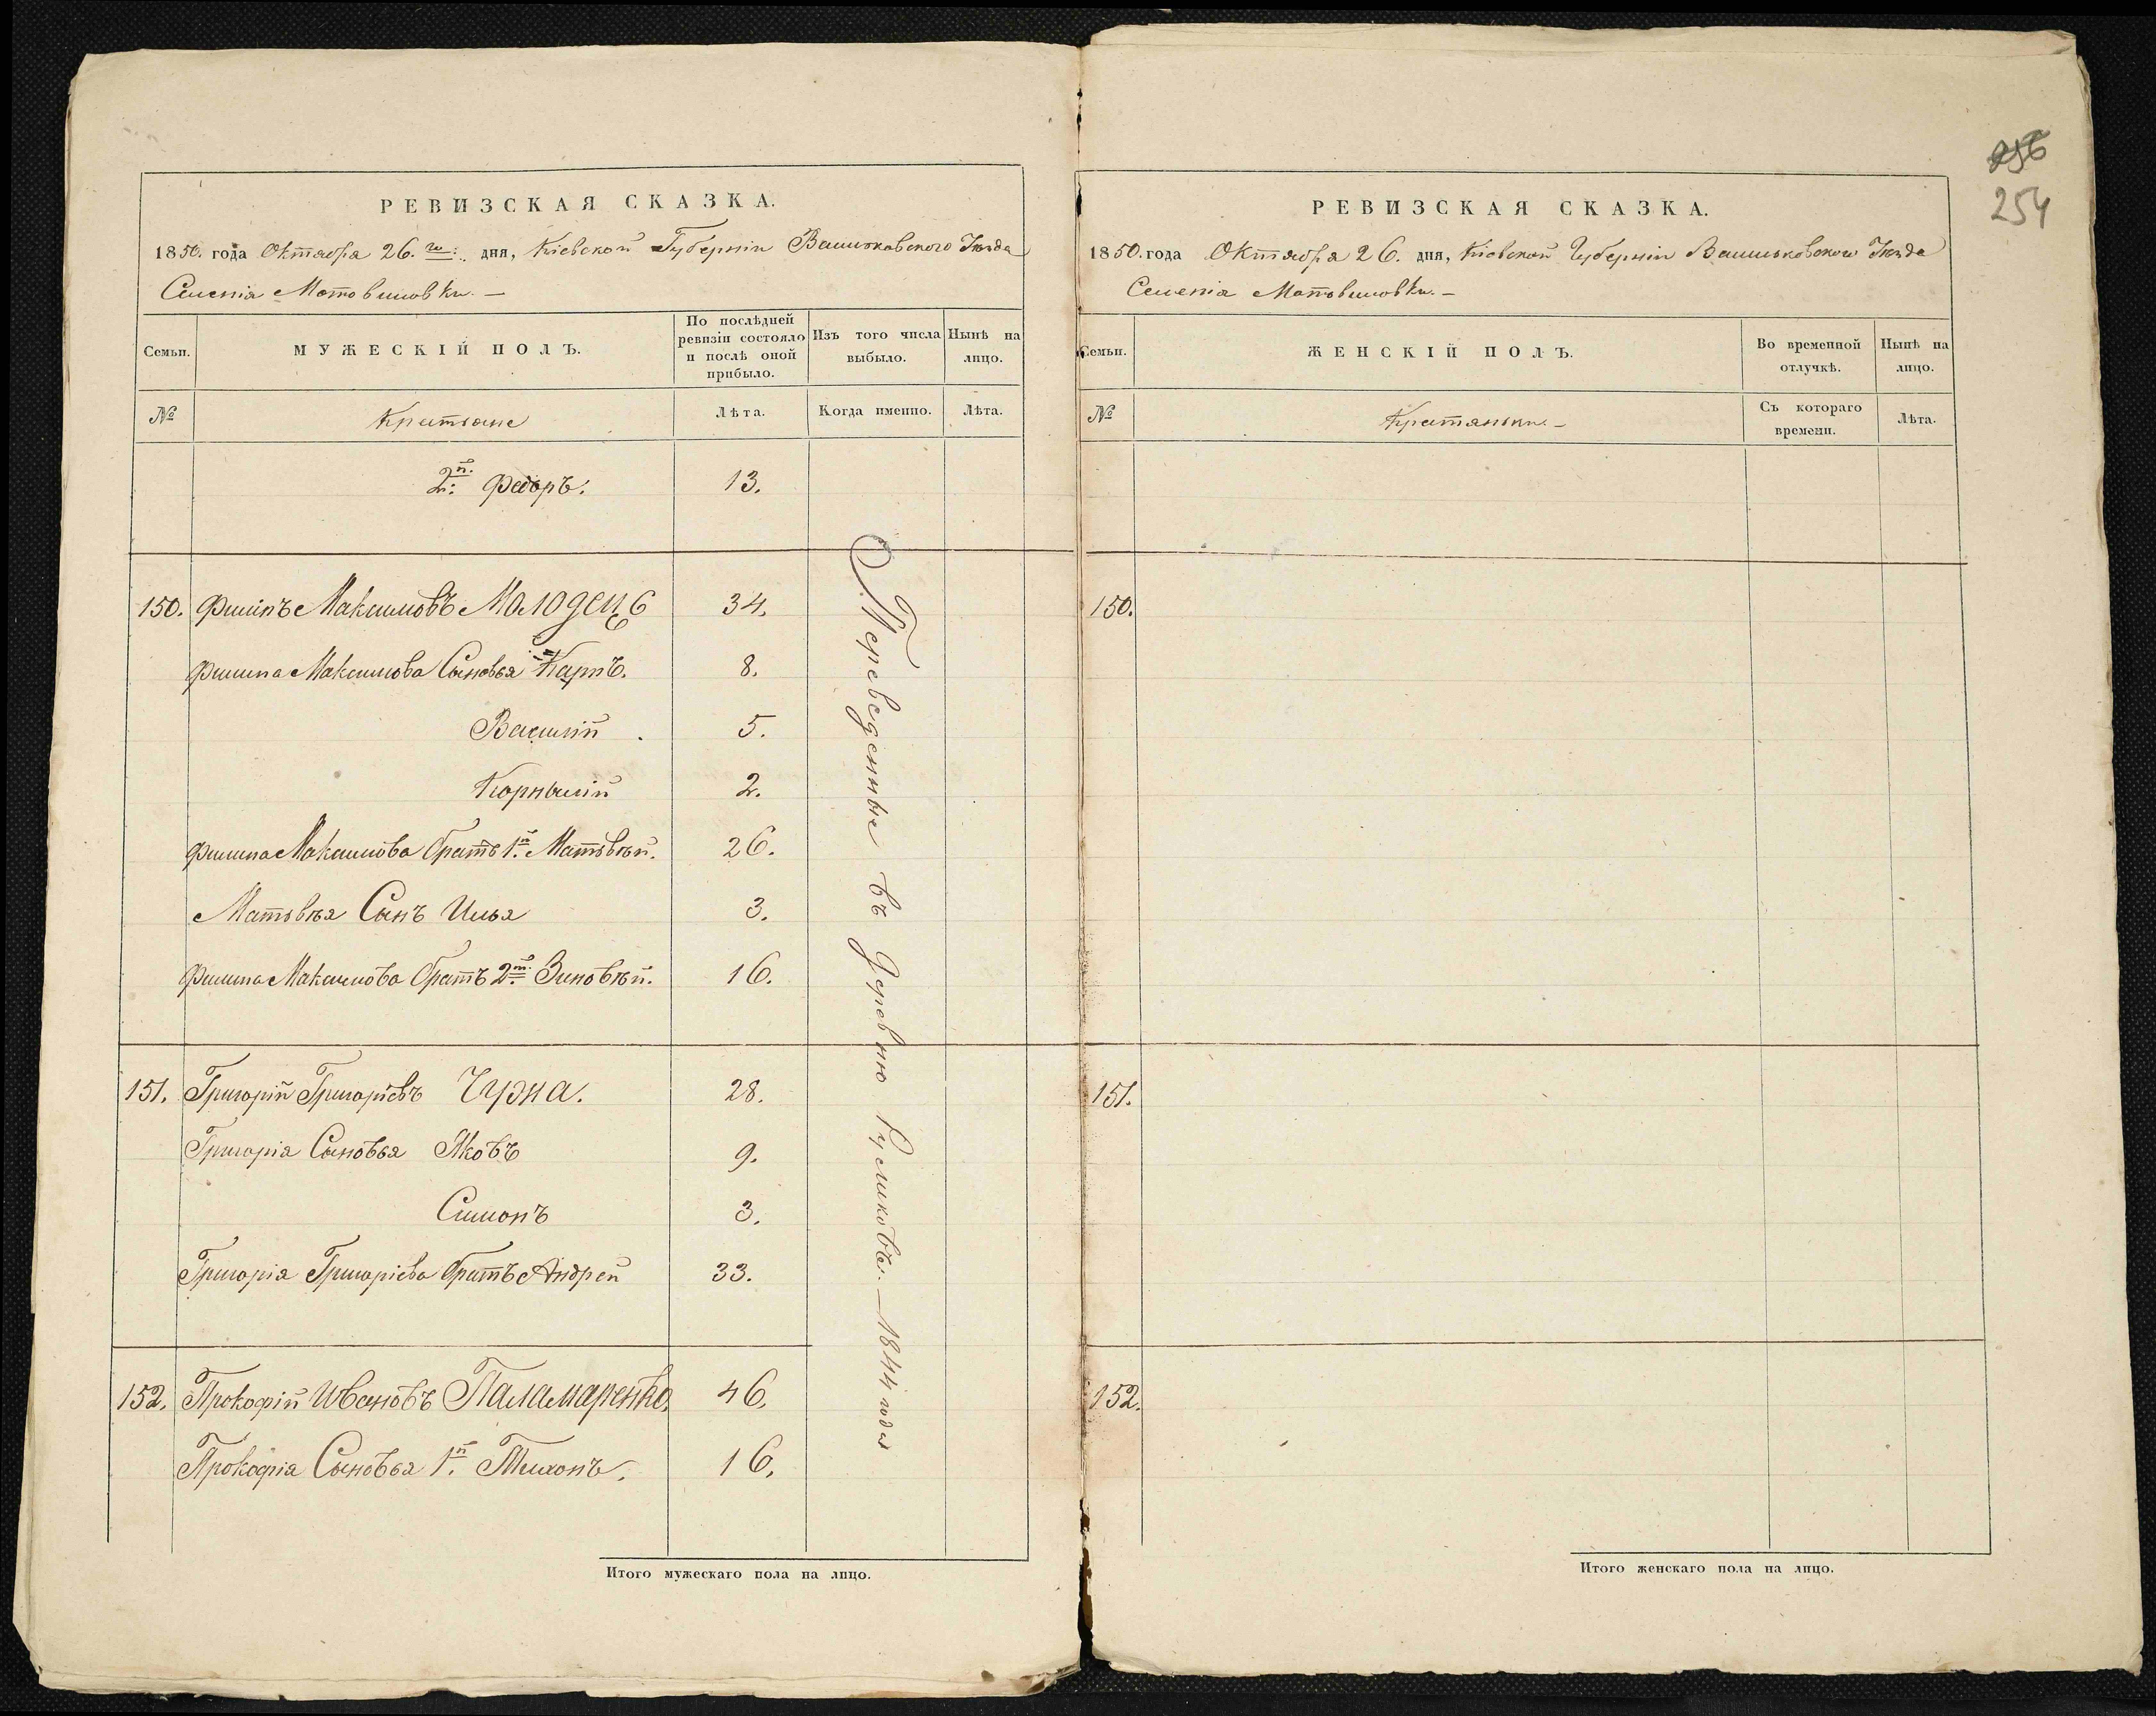 РЕВИЗСКАЯ СКАЗКА.
1850. года Октября 26.го дня, Кіевской Губерніи Васильковскаго Уѣзда
Селенія Мотовиловки. —
Семьи.
МУЖЕСКІЙ ПОЛЪ.
По послѣдней ревизіи состояло и послѣ оной прибыло.
Изъ того числа выбыло.
Нынѣ на лицо.
№
Крестьяне
Лѣта.
Когда именно.
Лѣта.
2й. Федоръ. 13.
150. Филипъ Максимовъ Молодец 34.
Филипа Максимова Сыновья Карпъ. 8.
Василій 5.
Корнилій 2.
Филипа Максимова братъ 1й Матвѣй. 26.
Матвѣя Сынъ Илья 3.
Филипа Максимова братъ 2й Зиновѣй. 16.
151. Григорій Григоріевъ 28.
Григорія Сыновья Яковъ 9.
Симонъ 3.
Григорія Григоріева братъ Андрей 33.
152. Прокофій Ивановъ Паламаренко. 46.
Прокофія Сыновья 1й Тихонъ. 16.
Переведенные въ деревню — 1844 года
Итого мужескаго пола на лицо.
256
254
РЕВИЗСКАЯ СКАЗКА.
1850. года Октября 26. дня, Кіевской Губерніи Васильковскаго Уѣзда
Селенія Мотовиловки. —
Семьи.
ЖЕНСКІЙ ПОЛЪ.
Во временной отлучкѣ.
Нынѣ на лицо.
№
Крестьянки —
Съ котораго времени.
Лѣта.
150.
151.
152.
Итого женскаго пола на лицо.